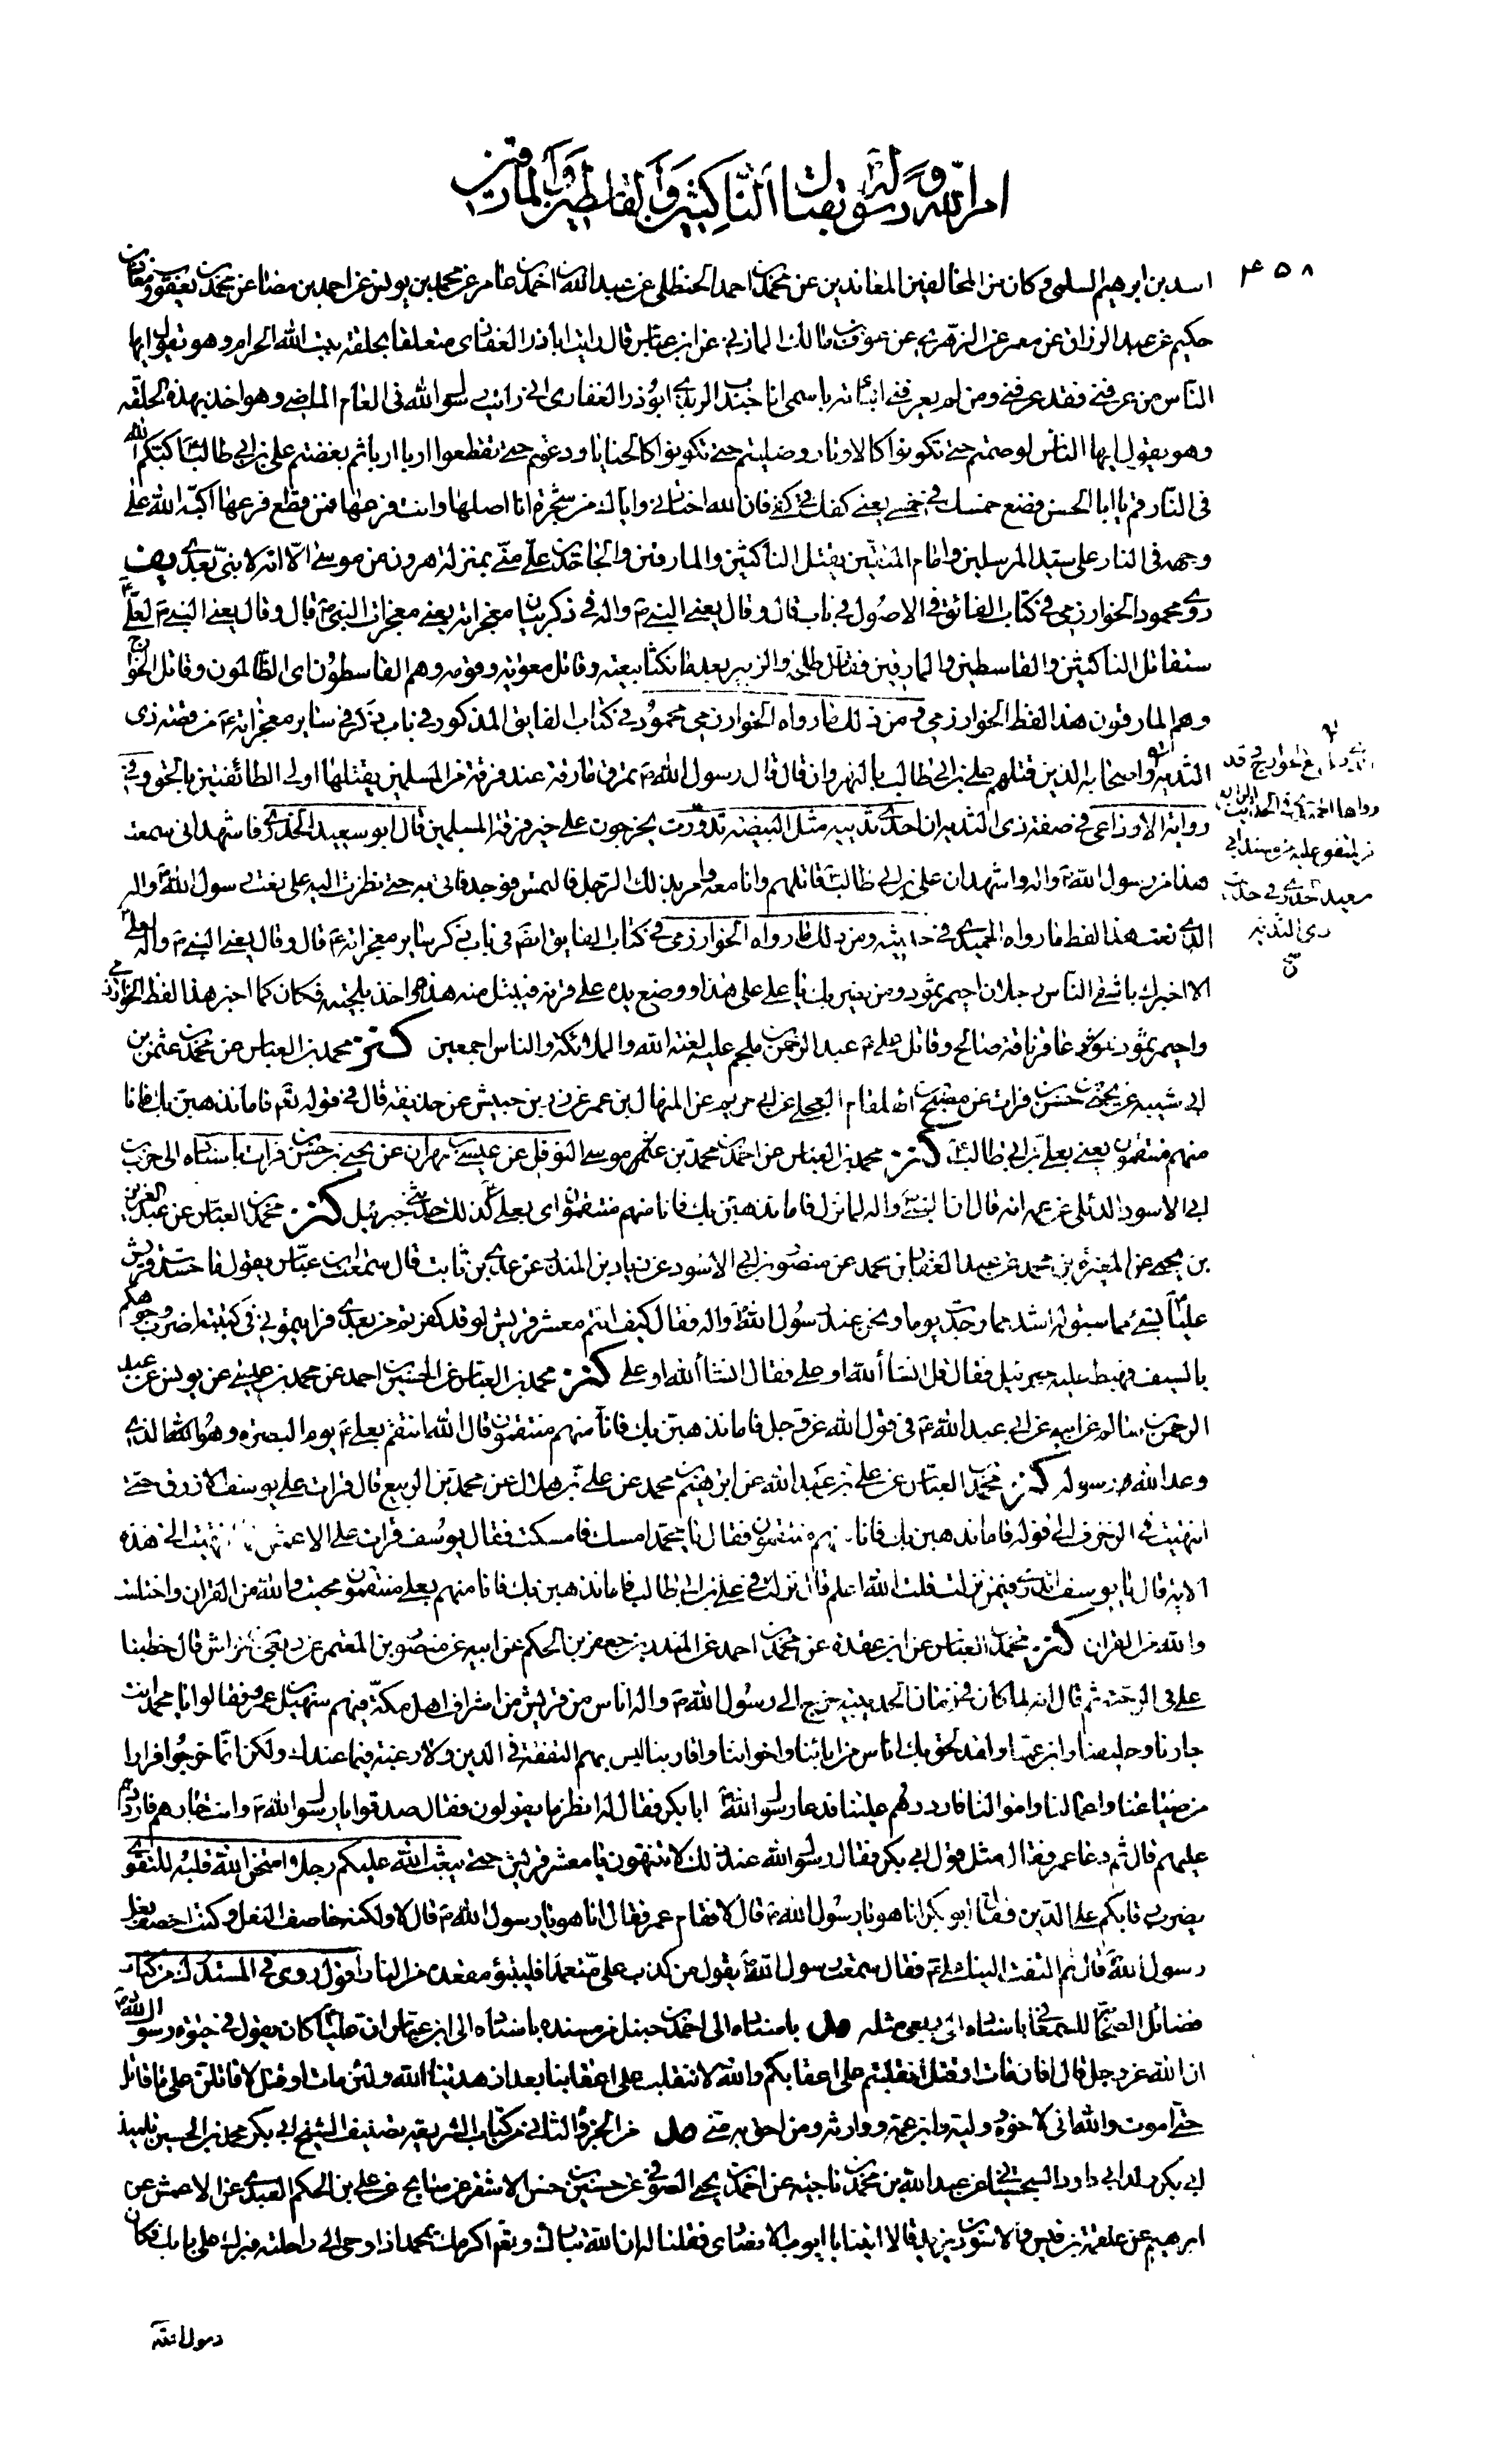 امر الله ورسوله بقتال الناكثين والقاسطين والمارقين
۴۵۸
اسد بن ابرهيم السلمي وكان من المخالفين المعاندين عن محمد بن احمد الحنظلي عن عبد الله بن احمد بن عامر عن محمد بن يونس عن احمد بن عن محمد بن يعقوب
حكيم عن عبد الرزاق عن معمر عن الزهري عن عوف بن مالك المازني عن ابن عباس قال رايت اباذر الغفاري متعلقا بحلقة بيت الله الحرام وهو يقول ايها
الناس من عرفني فقد عرفني ومن لم يعرفني انبأته باسمي انا جندب الربذي ابوذر الغفاري اني رايت رسول الله في العام الماضي وهو اخذ بهذه الحلقة
وهو يقول ايها الناس لو صمتم حتى تكونوا كالاوتار وصليتم حتى تكونوا كالحنايا ودعوتم حتى تقطعوا اربا اربا ثم بغضتم علي بن ابي طالب اكبكم الله
في النار قم يا ابا الحسن فضع خمسك في خمسي يعني كفك في كفي فان الله اختارني واياك من شجرة انا اصلها وانت فرعها فمن قطع فرعها اكبه الله على
وجهه في النار علي سيد المرسلين وامام المتقين يقتل الناكثين والمارقين والجاحدين علي مني بمنزلة هرون من موسى الا انه لا نبي بعدي يف
روى محمود الخوارزمي في كتاب الفائق في الاصول في باب قال وقال يعني النبي ص واله في ذكر معجزاته يعني معجزات النبي ص قال وقال يعني النبي ص لعلي ع
ستقاتل الناكثين والقاسطين والمارقين فقاتل طلحة والزبير بعد ما نكثا بيعته وقاتل معوية وقومه وهم القاسطون اى الظالمون وقاتل الخوارج
وهم المارقون هذا لفظ الخوارزمي في ومن ذلك ما رواه الخوارزمي محمود في كتاب الفايق المذكور في باب ذكر في ساير معجزاته ع من قصة ذى
الثدية واصحابه الذين قتلهم علي بن ابي طالب بالنهروان قال قال رسول الله ص تمرق مارقة عند فرقة من المسلمين يقتلها اولى الطائفتين بالحق وفي
رواية الاوزاعي في صفة ذى الثدية ان احدى ثدييه مثل البيضة تدردر يخرجون على خير فرقة المسلمين قال ابو سعيد الخدري فاشهد اني سمعت
هذا من رسول الله ص واله واشهد ان علي بن ابي طالب قاتلهم وانا معه وامر بذلك الرجل فالتمس فوجد فاتي به حتى نظرت اليه على نعت رسول الله ص واله
الذي نعت هذا لفظ ما رواه الحميدي في حديثه ومن ذلك ما رواه الخوارزمي في كتاب الفايق ايضا في باب ذكر ساير معجزاته ع قال وقال يعني النبي ص واله لعلي ع
الا اخبرك باشقى الناس رجلان احيمر ثمود ومن يضربك يا علي على هذا ووضع يده على قرنه فيبتل منه هذه واخذ بلحيته فكان كما اخبر هذا لفظ الخوارزمي
واحيمر ثمود عاقر ناقة صالح وقاتل علي ع عبد الرحمن بن ملجم عليه لعنة الله والملائكة والناس اجمعين كنز محمد بن العباس عن محمد بن عثمن بن
ابي شيبة عن يحيى بن حسن بن فرات عن مصبح بن الهلقام العجلي عن ابي مريم عن المنهال بن عمر عن زر بن حبيش عن حذيفة قال في قوله تعم فاما نذهبن بك فانا
منهم منتقمون يعني بعلي بن ابي طالب ع كنز محمد بن العباس عن احمد بن محمد بن موسى النوفلي عن عيسى بن مهران عن يحيى بن حسن بن فرات باسناده الى حرب بن
ابي الاسود الدئلي عن عمه انه قال ان النبي ص واله لما نزل فاما نذهبن بك فانا منهم منتقمون اى بعلي كذلك حدثني جبرئيل كنز محمد بن العباس عن عبد العزيز
بن يحيى عن المغيرة بن محمد عن عبد الغفار بن محمد عن منصور بن ابي الاسود عن زياد بن المنذر عن عدي بن ثابت قال سمعت ابن عباس يقول ما حسدت قريش
عليا بشيء مما سبق له اشد مما وجدت يوما ونحن عند رسول الله ص واله فقال كيف انتم معشر قريش لو قد كفرتم من بعدي فرايتموني في كتيبة اضرب وجوهكم
بالسيف فهبط عليه جبرئيل فقال قل انشاء الله او علي فقال انشاء الله او علي كنز محمد بن العباس عن الحسين بن احمد عن محمد بن عيسى عن يونس عن عبد
الرحمن بن سالم عن ابيه عن ابي عبد الله ع في قول الله عز وجل فاما نذهبن بك فانا منهم منتقمون قال الله انتقم بعلي ع يوم البصرة وهو الذي
وعد الله رسوله كنز محمد بن العباس عن علي بن عبد الله عن ابرهيم بن محمد عن علي بن هلال عن محمد بن الربيع قال قرات على يوسف الازرق حتى
انتهيت في الزخرف الى قوله فاما نذهبن بك فانا منهم منتقمون فقال يا محمد امسك فامسكت فقال يوسف قرات على الاعمش فلما انتهيت الى هذه
الاية قال يا يوسف اتدري فيمن نزلت قلت الله اعلم قال نزلت في علي بن ابي طالب فاما نذهبن بك فانا منهم بعلي منتقمون محيت والله من القران واختلست
والله من القران كنز محمد بن العباس عن ابن عقدة عن محمد بن احمد عن المنذر بن جعفر بن الحكم عن ابيه عن منصور بن المعتمر عن ربعي بن خراش قال خطبنا
علي في الرحبة ثم قال انه لما كان في زمان الحديبية خرج الى رسول الله ص واله اناس من قريش من اشراف اهل مكة فيهم سهيل بن عمرو فقالوا يا محمد انت
جارنا وحليفنا وابن عمنا وقد لحق بك اناس من ابائنا واخواننا واقاربنا ليس بهم التفقه في الدين ولا رغبة فيما عندك ولكن انما خرجوا فرارا
من ضياعنا واعمالنا واموالنا فارددهم علينا فدعا رسول الله ص ابا بكر فقال له انظر ما يقولون فقال صدقوا يا رسول الله ص وانت جارهم فارددهم
عليهم قال ثم دعا عمر فقال مثل قول ابي بكر فقال رسول الله عند ذلك لا تنتهون يا معشر قريش حتى يبعث الله عليكم رجلا امتحن الله قلبه للتقوى
يضرب رقابكم على الدين فقال ابو بكر انا هو يا رسول الله ص قال لا فقام عمر فقال انا هو يا رسول الله ص قال لا ولكنه خاصف النعل وكنت اخصف نعل
رسول الله ص قال ثم التفت الينا علي ع فقال سمعت رسول الله ص يقول من كذب علي متعمدا فليتبوء مقعده من النار اقول روى في المستدرك من كتاب
فضائل الصحابة للسمعاني باسناده الى ربعي مثله مل باسناده الى احمد بن حنبل من مسنده باسناده الى ابن عباس ان عليا كان يقول في حيوة رسول الله ص
ان الله عز وجل قال افان مات او قتل انقلبتم على اعقابكم والله لا ننقلب على اعقابنا بعد ان هدينا الله ولئن مات او قتل لاقاتلن على ما قاتل
حتى اموت والله اني لاخوه ووليه وابن عمه ووارثه ومن احق به مني مل من الجزء الثاني من كتاب الشريعة تصنيف الشيخ ابي بكر محمد بن الحسين تلميذ
ابي بكر ولد ابي داود السجستاني عن عبد الله بن محمد بن ناجية عن احمد بن يحيى الصوفي عن حسين بن حسن الاشقر عن عن علي بن الحكم العبدي عن الاعمش عن
ابرهيم عن علقمة بن قيس والاسود بن يزيد قالا اتينا ابا ايوب الانصاري فقلنا له ان الله تبارك وتعم اكرمك بمحمد اذ اوحى الى راحلته فبركت على بابك فكان
رسول الله
الخوارج وقد
رواها الحميدي في الحديث الرابع
من المتفق عليه من مسند ابي
سعيد الخدري في حديث
ذى الثدية
صح